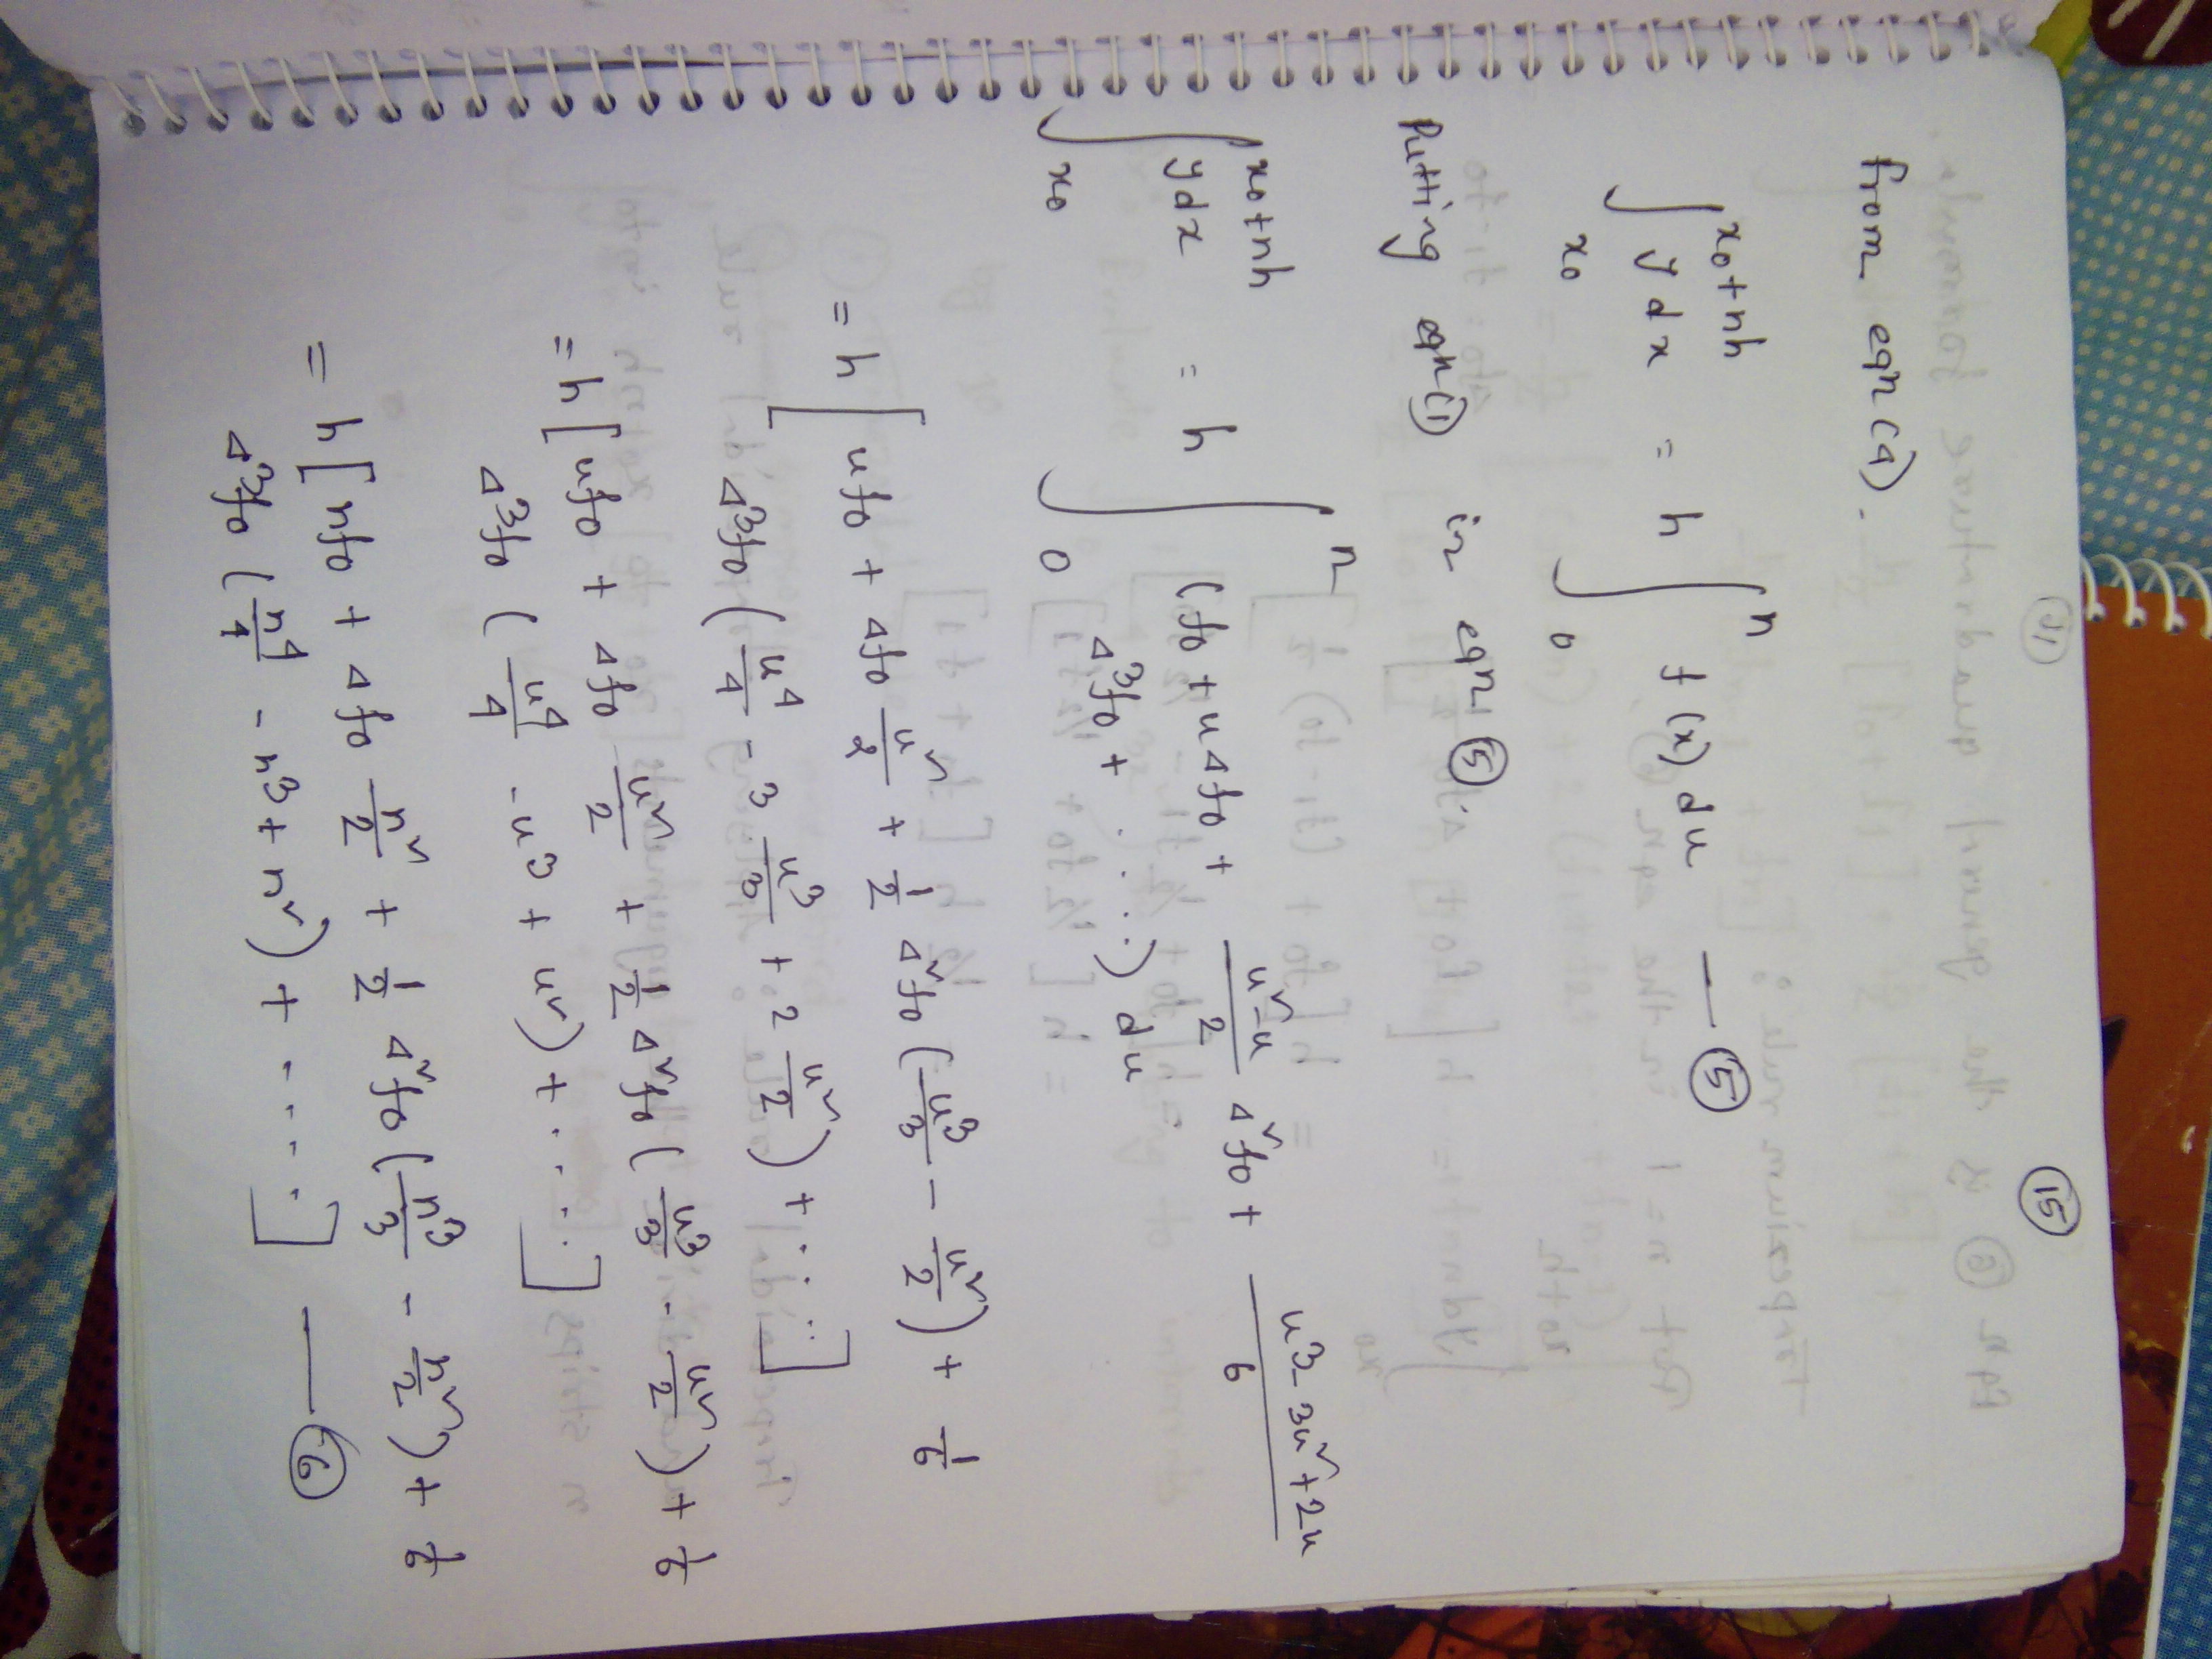 15
from eqn (4).
∫_{x0}^{x0+nh} y dx = h ∫_0^n f(x) du — ⑤
Putting eqn ① in eqn ⑤.
∫_{x0}^{x0+nh} ydx = h ∫_0^n (f0 + uΔf0 + (u²-u)/2 Δ²f0 + (u³-3u²+2u)/6
Δ³f0 + .....) du
= h [uf0 + Δf0 u²/2 + 1/2 Δ²f0 (u³/3 - u²/2) + 1/6
Δ³f0 (u⁴/4 - 3 u³/3 + 2 u²/2) + ....]
= h [uf0 + Δf0 u²/2 + 1/2 Δ²f0 (u³/3 - u²/2) + 1/6
Δ³f0 (u⁴/4 - u³ + u²) + ....]
= h [nf0 + Δf0 n²/2 + 1/2 Δ²f0 (n³/3 - n²/2) + 1/6
Δ³f0 (n⁴/4 - n³ + n²) + ....] — ⑥